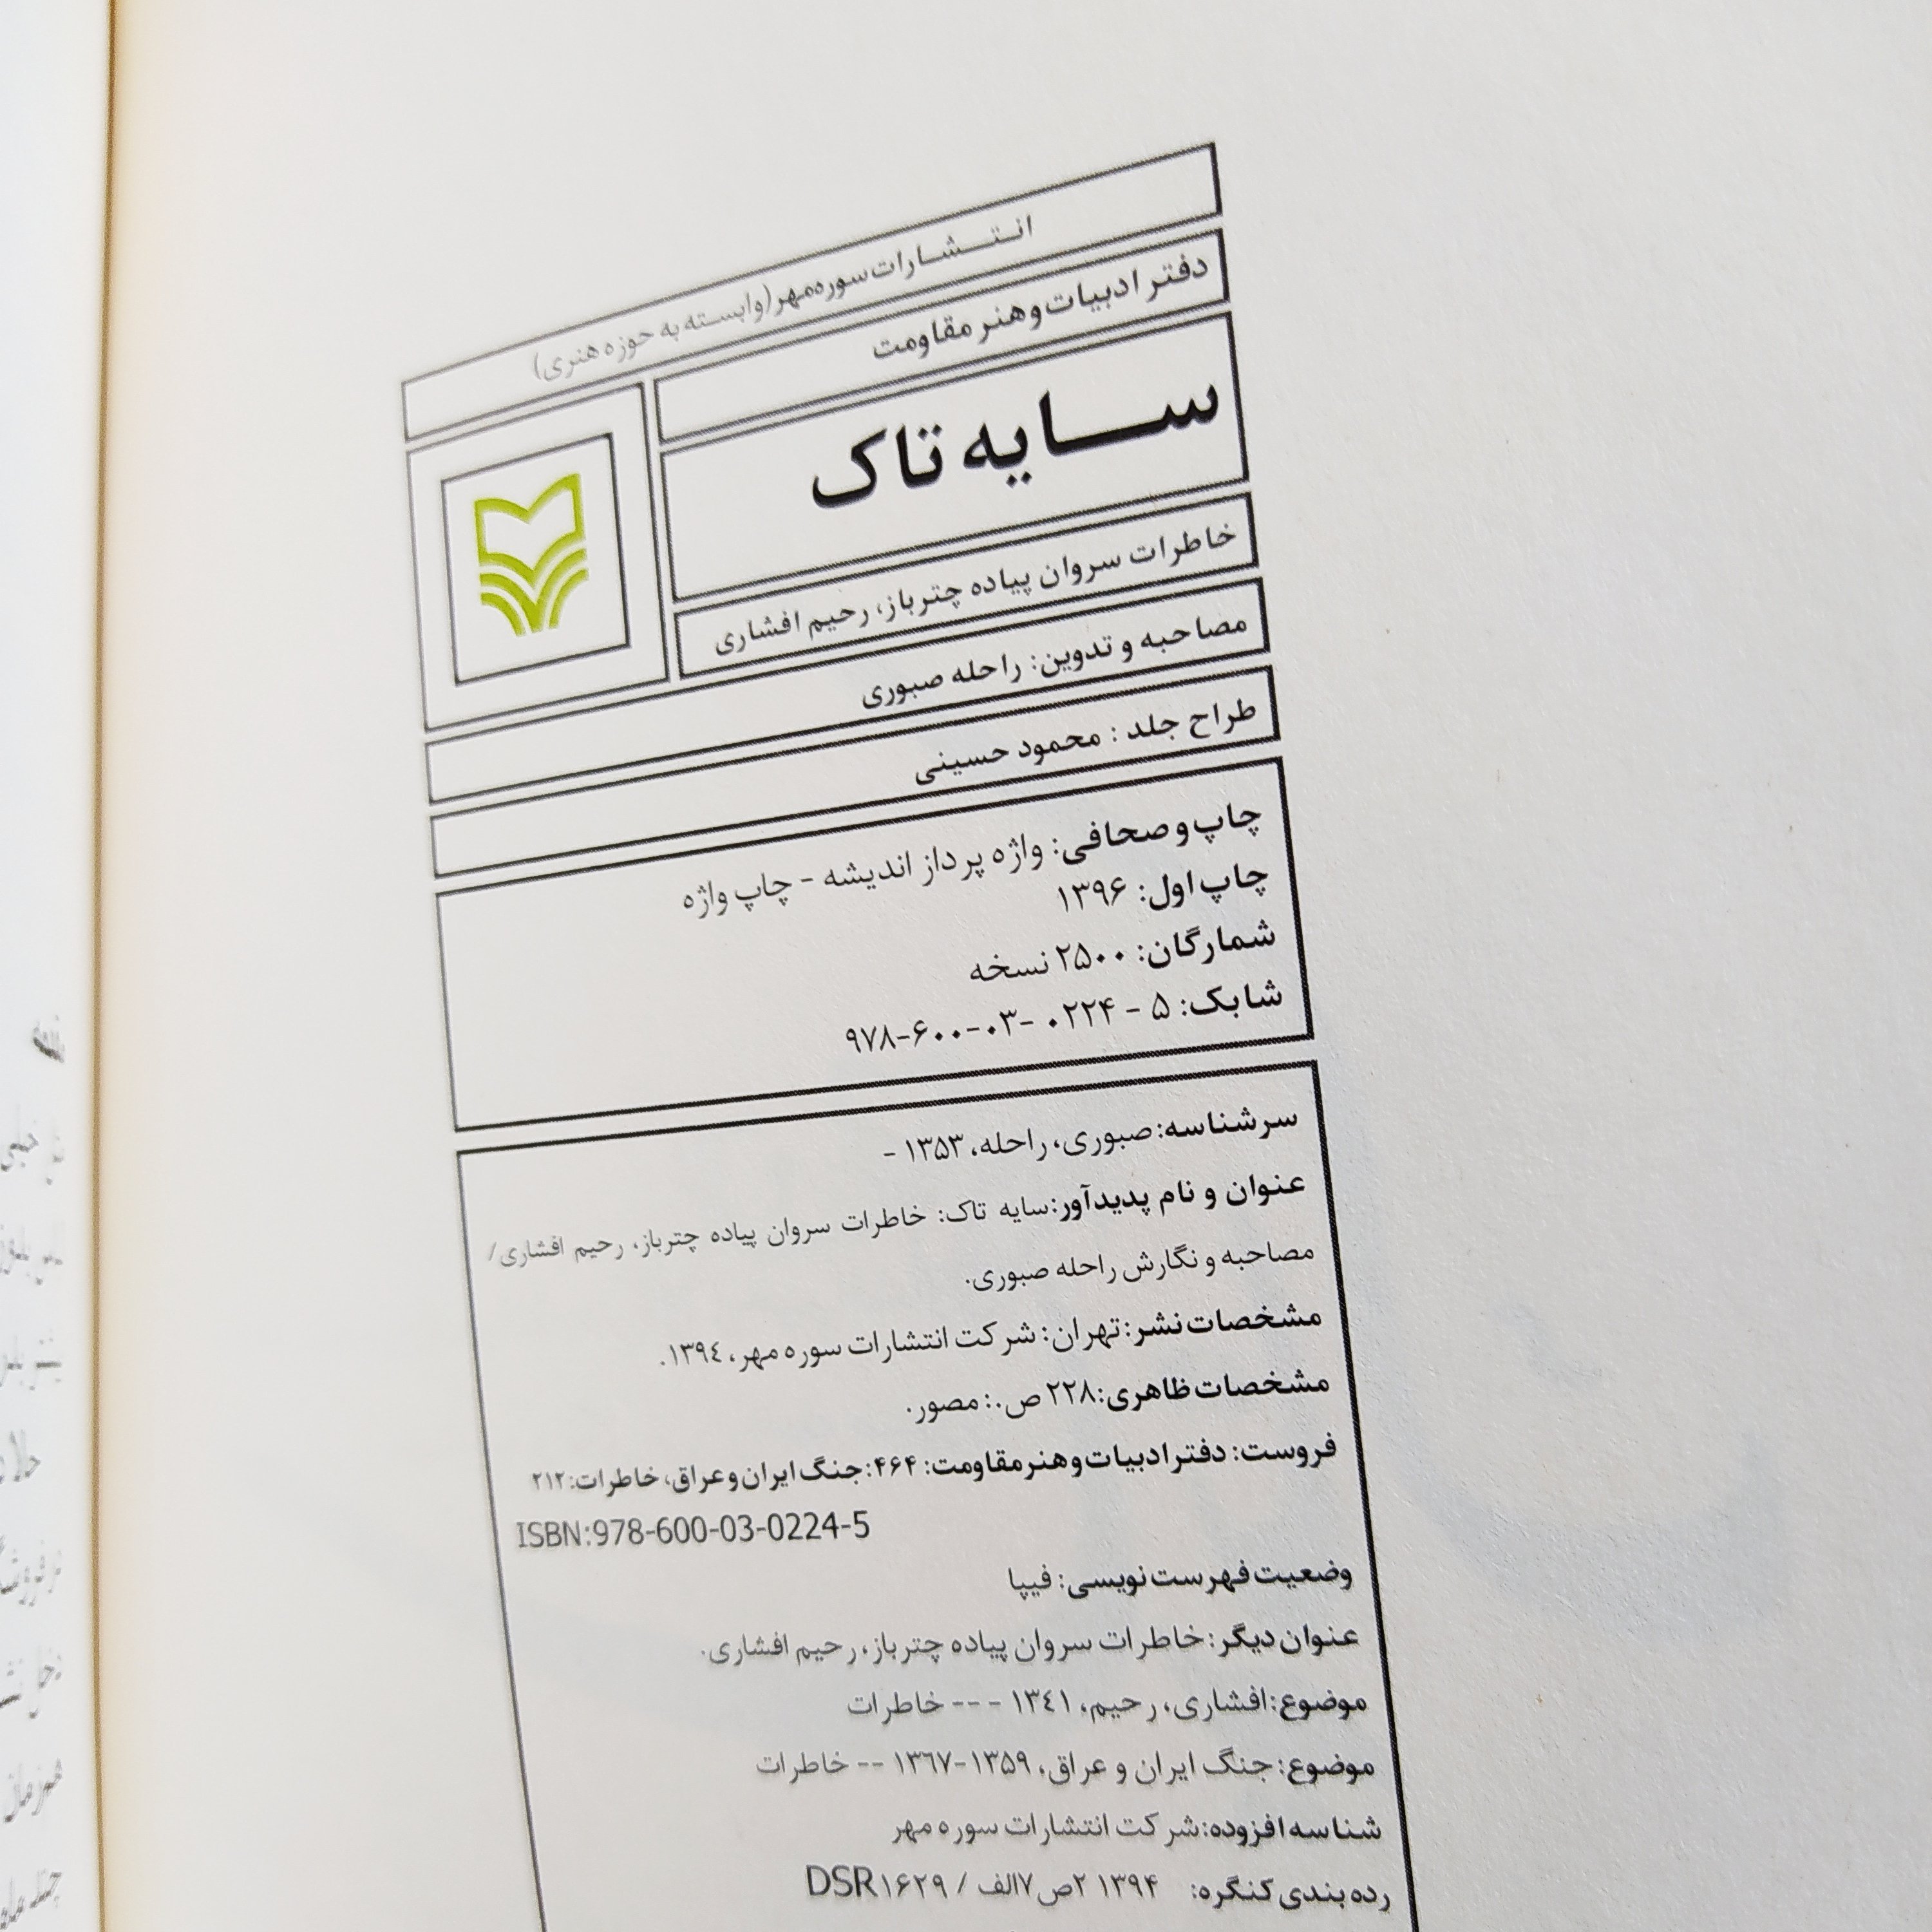 انتشارات سوره‌مهر (وابسته به حوزه هنری)
دفتر ادبیات و هنر مقاومت
سایه تاک
خاطرات سروان پیاده چترباز، رحیم افشاری
مصاحبه و تدوین: راحله صبوری
طراح جلد : محمود حسینی
چاپ و صحافی: واژه پرداز اندیشه - چاپ واژه
چاپ اول: ۱۳۹۶
شمارگان: ۲۵۰۰ نسخه
شابک: ۵ - ۰۲۲۴ -۰۳-۶۰۰-۹۷۸
سرشناسه: صبوری، راحله، ۱۳۵۳ -
عنوان و نام پدیدآور: سایه تاک: خاطرات سروان پیاده چترباز، رحیم افشاری/
مصاحبه و نگارش راحله صبوری.
مشخصات نشر: تهران: شرکت انتشارات سوره مهر، ۱۳۹٤.
مشخصات ظاهری: ۲۲۸ ص.: مصور.
فروست: دفتر ادبیات و هنر مقاومت: ۴۶۴: جنگ ایران و عراق، خاطرات: ۲۱۲
ISBN:978-600-03-0224-5
وضعیت فهرست نویسی: فیپا
عنوان دیگر: خاطرات سروان پیاده چترباز، رحیم افشاری.
موضوع: افشاری، رحیم، ۱۳٤۱ - -- خاطرات
موضوع: جنگ ایران و عراق، ۱۳۵۹-۱۳٦۷ -- خاطرات
شناسه افزوده: شرکت انتشارات سوره مهر
رده بندی کنگره: ۱۳۹۴ ۲ص۷الف / DSR۱۶۲۹